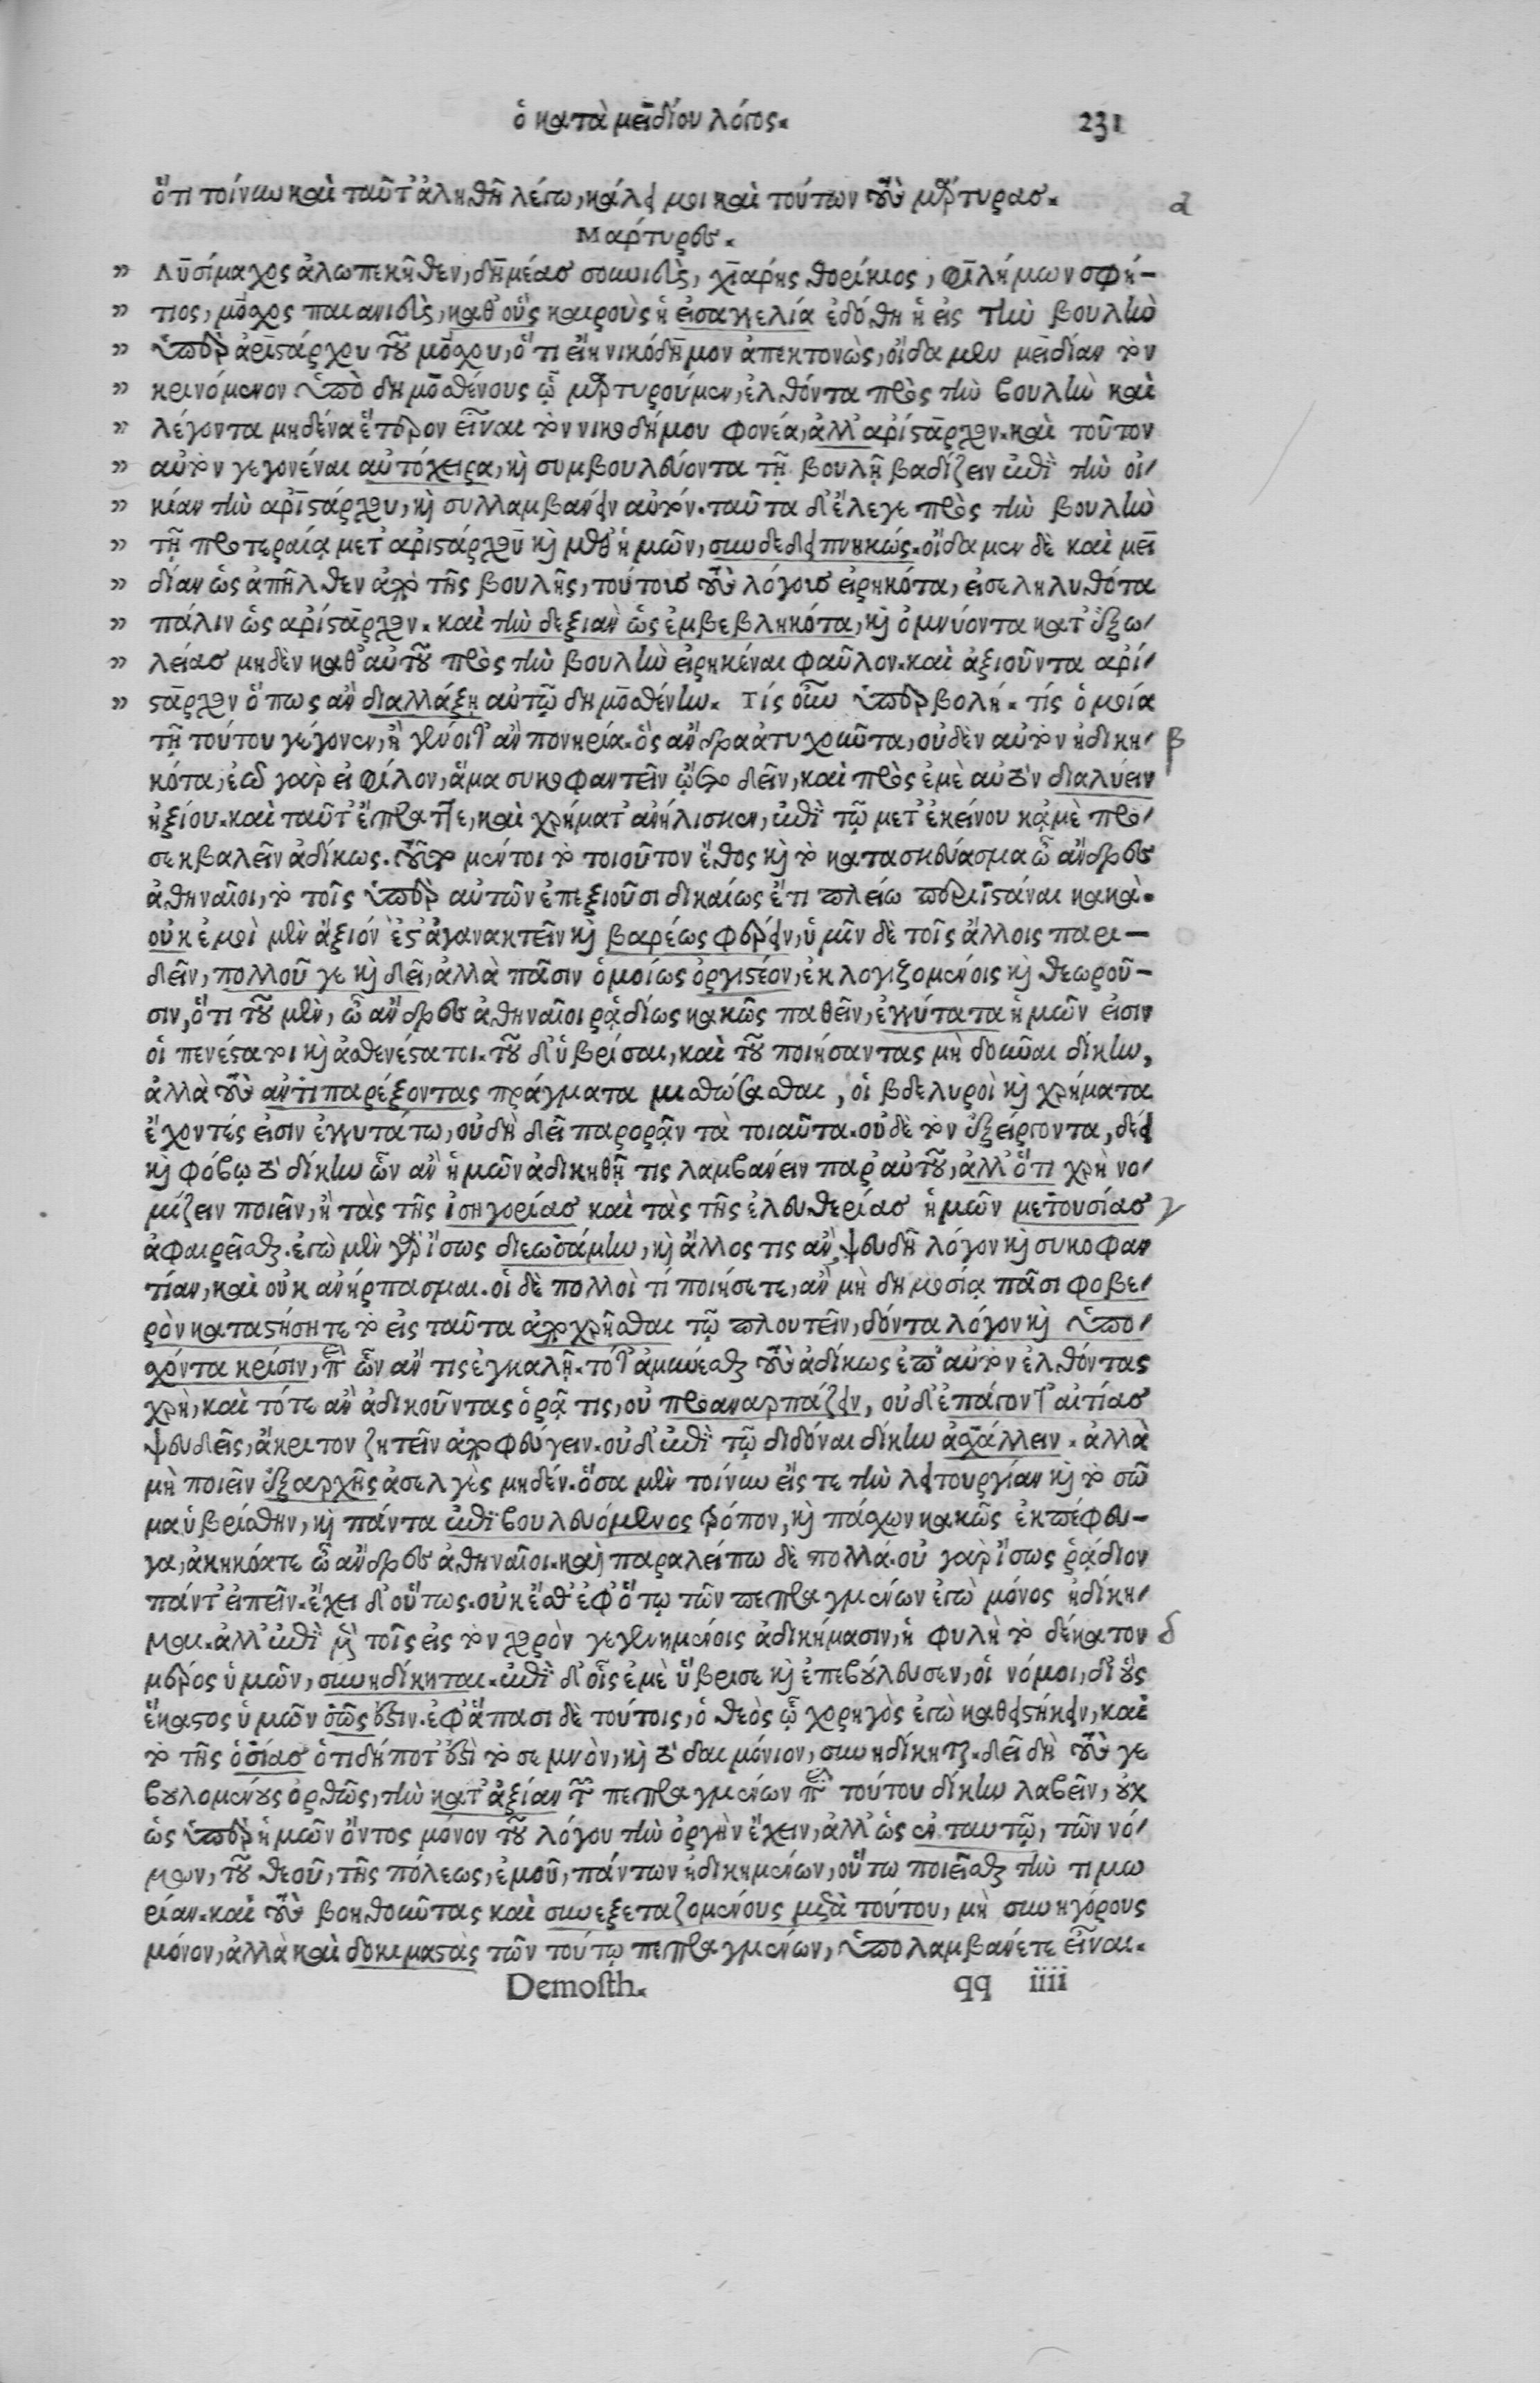 ὁ κατὰ μειδίου λόγος. 231
ὅτι τοίνυν καὶ ταῦτ' ἀληθῆ λέγω, κάλει μοι καὶ τούτων τοὺς μάρτυρασ. α
Μάρτυρες.
" Λυσίμαχος ἀλωπεκῆθεν, δημέασ σουνιεὺς, χάρης θορίκιος, φιλήμων σφή-
" τιος, μόσχος παιανιεὺς, καθ' οὓς καιροὺς ἡ εἰσαγγελία ἐδόθη ἡ εἰς τὴν βουλὴν
" ὑπὲρ ἀριστάρχου τοῦ μόσχου, ὅτι εἴη νικόδημον ἀπεκτονὼς, οἴδαμεν μειδίαν τὸν
" κρινόμενον ὑπὸ δημοσθένους ᾧ μαρτυρούμεν, ἐλθόντα πρὸς τὴν βουλὴν καὶ
" λέγοντα μηδένα ἕτερον εἶναι τὸν νικοδήμου φονέα, ἀλλ' ἀρίσταρχον. καὶ τοῦτον
" αὐτὸν γεγονέναι αὐτόχειρα, καὶ συμβουλεύοντα τῇ βουλῇ βαδίζειν ἐπὶ τὴν οἰ-
" κίαν τὴν ἀριστάρχου, καὶ συλλαμβάνειν αὐτόν. ταῦτα δ' ἔλεγε πρὸς τὴν βουλὴν
" τῇ προτεραίᾳ μετ' ἀριστάρχου καὶ μεθ' ἡμῶν, συνδεδειπνηκώς. οἴδαμεν δὲ καὶ μει
" δίαν ὡς ἀπῆλθεν ἀπὸ τῆς βουλῆς, τούτουσ τοὺς λόγουσ εἰρηκότα, εἰσεληλυθότα
" πάλιν ὡς ἀρίσταρχον. καὶ τὴν δεξιὰν ὡς ἐμβεβληκότα, καὶ ὀμνύοντα κατ' ἐξω-
" λείασ μηδὲν καθ' αὐτοῦ πρὸς τὴν βουλὴν εἰρηκέναι φαῦλον. καὶ ἀξιοῦντα ἀρί-
" σταρχον ὅπως ἂν διαλλάξῃ αὐτῷ δημοσθένην. Τίς οὖν ὑπερβολή. τίς ὁμοία
τῇ τούτου γέγονεν, ἢ γένοιτ' ἂν πονηρία. ὃς ἄνδρα ἀτυχοῦντα, οὐδὲν αὐτὸν ἠδικη- β
κότα, ἐῶ γὰρ εἰ φίλον, ἅμα συκοφαντεῖν ᾤετο δεῖν, καὶ πρὸς ἐμὲ αὑτὸν διαλύειν
ἠξίου. καὶ ταῦτ' ἔπραττε, καὶ χρήματ' ἀνήλισκεν, ἐπὶ τῷ μετ' ἐκείνου κἀμὲ προ-
σεκβαλεῖν ἀδίκως. τοῦτο μέντοι τὸ τοιοῦτον ἔθος καὶ τὸ κατασκεύασμα ὦ ἄνδρες
ἀθηναῖοι, τὸ τοῖς ὑπὲρ αὑτῶν ἐπεξιοῦσι δικαίως ἔτι πλείω περιϊστάναι κακά.
οὐκ ἐμοὶ μὲν ἄξιόν ἐστ' ἀγανακτεῖν καὶ βαρέως φέρειν, ὑμῖν δὲ τοῖς ἄλλοις παρι-
δεῖν, πολλοῦ γε καὶ δεῖ, ἀλλὰ πᾶσιν ὁμοίως ὀργιστέον, ἐκλογιζομένοις καὶ θεωροῦ-
σιν, ὅτι τοῦ μὲν, ὦ ἄνδρες ἀθηναῖοι ῥᾳδίως κακῶς παθεῖν, ἐγγύτατα ἡμῶν εἰσιν
οἱ πενέστατοι καὶ ἀσθενέστατοι. τοῦ δ' ὑβρίσαι, καὶ τοῦ ποιήσαντας μὴ δοῦναι δίκην,
ἀλλὰ τοὺς ἀντιπαρέξοντας πράγματα μισθώσασθαι, οἱ βδελυροὶ καὶ χρήματα
ἔχοντές εἰσιν ἐγγυτάτω, οὐ δὴ δεῖ παρορᾷν τὰ τοιαῦτα. οὐδὲ τὸν ἐξείργοντα, δέει
καὶ φόβῳ τὸ δίκην ὧν ἂν ἡμῶν ἀδικηθῇ τις λαμβάνειν παρ' αὐτοῦ, ἀλλ' ὅτι χρὴ νο-
μίζειν ποιεῖν, ἢ τὰς τῆς ἰσηγορίασ καὶ τὰς τῆς ἐλευθερίασ ἡμῶν μετουσίασ γ
ἀφαιρεῖσθαι. ἐγὼ μὲν γὰρ ἴσως διεωσάμην, καὶ ἄλλος τις ἂν, ψευδῆ λόγον καὶ συκοφαν
τίαν, καὶ οὐκ ἀνήρπασμαι. οἱ δὲ πολλοὶ τί ποιήσετε, ἂν μὴ δημοσίᾳ πᾶσι φοβε-
ρὸν καταστήσητε τὸ εἰς ταῦτα ἀποχρῆσθαι τῷ πλουτεῖν, δόντα λόγον καὶ ὑπο-
χόντα κρίσιν, περὶ ὧν ἄν τις ἐγκαλῇ. τότ' ἀμύνεσθαι τοὺς ἀδίκως ἐπ' αὐτὸν ἐλθόντας
χρὴ, καὶ τότε ἂν ἀδικοῦντας ὁρᾷ τις, οὐ προαναρπάζειν, οὐδ' ἐπάγοντ' αἰτίασ
ψευδεῖς, ἄκριτον ζητεῖν ἀποφεύγειν. οὐδ' ἐπὶ τῷ διδόναι δίκην ἀσχάλλειν. ἀλλὰ
μὴ ποιεῖν ἐξαρχῆς ἀσελγὲς μηδέν. ὅσα μὲν τοίνυν εἴς τε τὴν λειτουργίαν καὶ τὸ σῶ
μα ὑβρίσθην, καὶ πάντα ἐπιβουλευόμενος τρόπον, καὶ πάσχων κακῶς ἐκπέφευ-
γα, ἀκηκόατε ὦ ἄνδρες ἀθηναῖοι. καὶ παραλείπω δὲ πολλά. οὐ γὰρ ἴσως ῥᾴδιον
πάντ' εἰπεῖν. ἔχει δ' οὕτως. οὐκ ἔσθ' ἐφ' ὅτῳ τῶν πεπραγμένων ἐγὼ μόνος ἠδίκη-
μαι. ἀλλ' ἐπὶ μὲν τοῖς εἰς τὸν χορὸν γεγενημένοις ἀδικήμασιν, ἡ φυλὴ τὸ δέκατον δ
μέρος ὑμῶν, συνηδίκηται. ἐπὶ δ' οἷς ἐμὲ ὕβρισε καὶ ἐπεβούλευσεν, οἱ νόμοι, δι' οὓς
ἕκαστος ὑμῶν σῶς ἐστιν. ἐφ' ἅπασι δὲ τούτοις, ὁ θεὸς ᾧ χορηγὸς ἐγὼ καθειστήκειν, καὶ
τὸ τῆς ὁσίασ ὁτιδήποτ' ἐστὶ τὸ σεμνὸν, καὶ τὸ δαιμόνιον, συνηδίκηται. δεῖ δὴ τούς γε
βουλομένους ὀρθῶς, τὴν κατ' ἀξίαν τῶν πεπραγμένων παρὰ τούτου δίκην λαβεῖν, οὐχ
ὡς ὑπὲρ ἡμῶν ὄντος μόνον τοῦ λόγου τὴν ὀργὴν ἔχειν, ἀλλ' ὡς ἐν ταυτῷ, τῶν νό-
μων, τοῦ θεοῦ, τῆς πόλεως, ἐμοῦ, πάντων ἠδικημένων, οὕτω ποιεῖσθαι τὴν τιμω
ρίαν. καὶ τοὺς βοηθοῦντας καὶ συνεξεταζομένους μετὰ τούτου, μὴ συνηγόρους
μόνον, ἀλλὰ καὶ δοκιμαστὰς τῶν τούτῳ πεπραγμένων, ὑπολαμβάνετε εἶναι.
Demosth. qq iiii